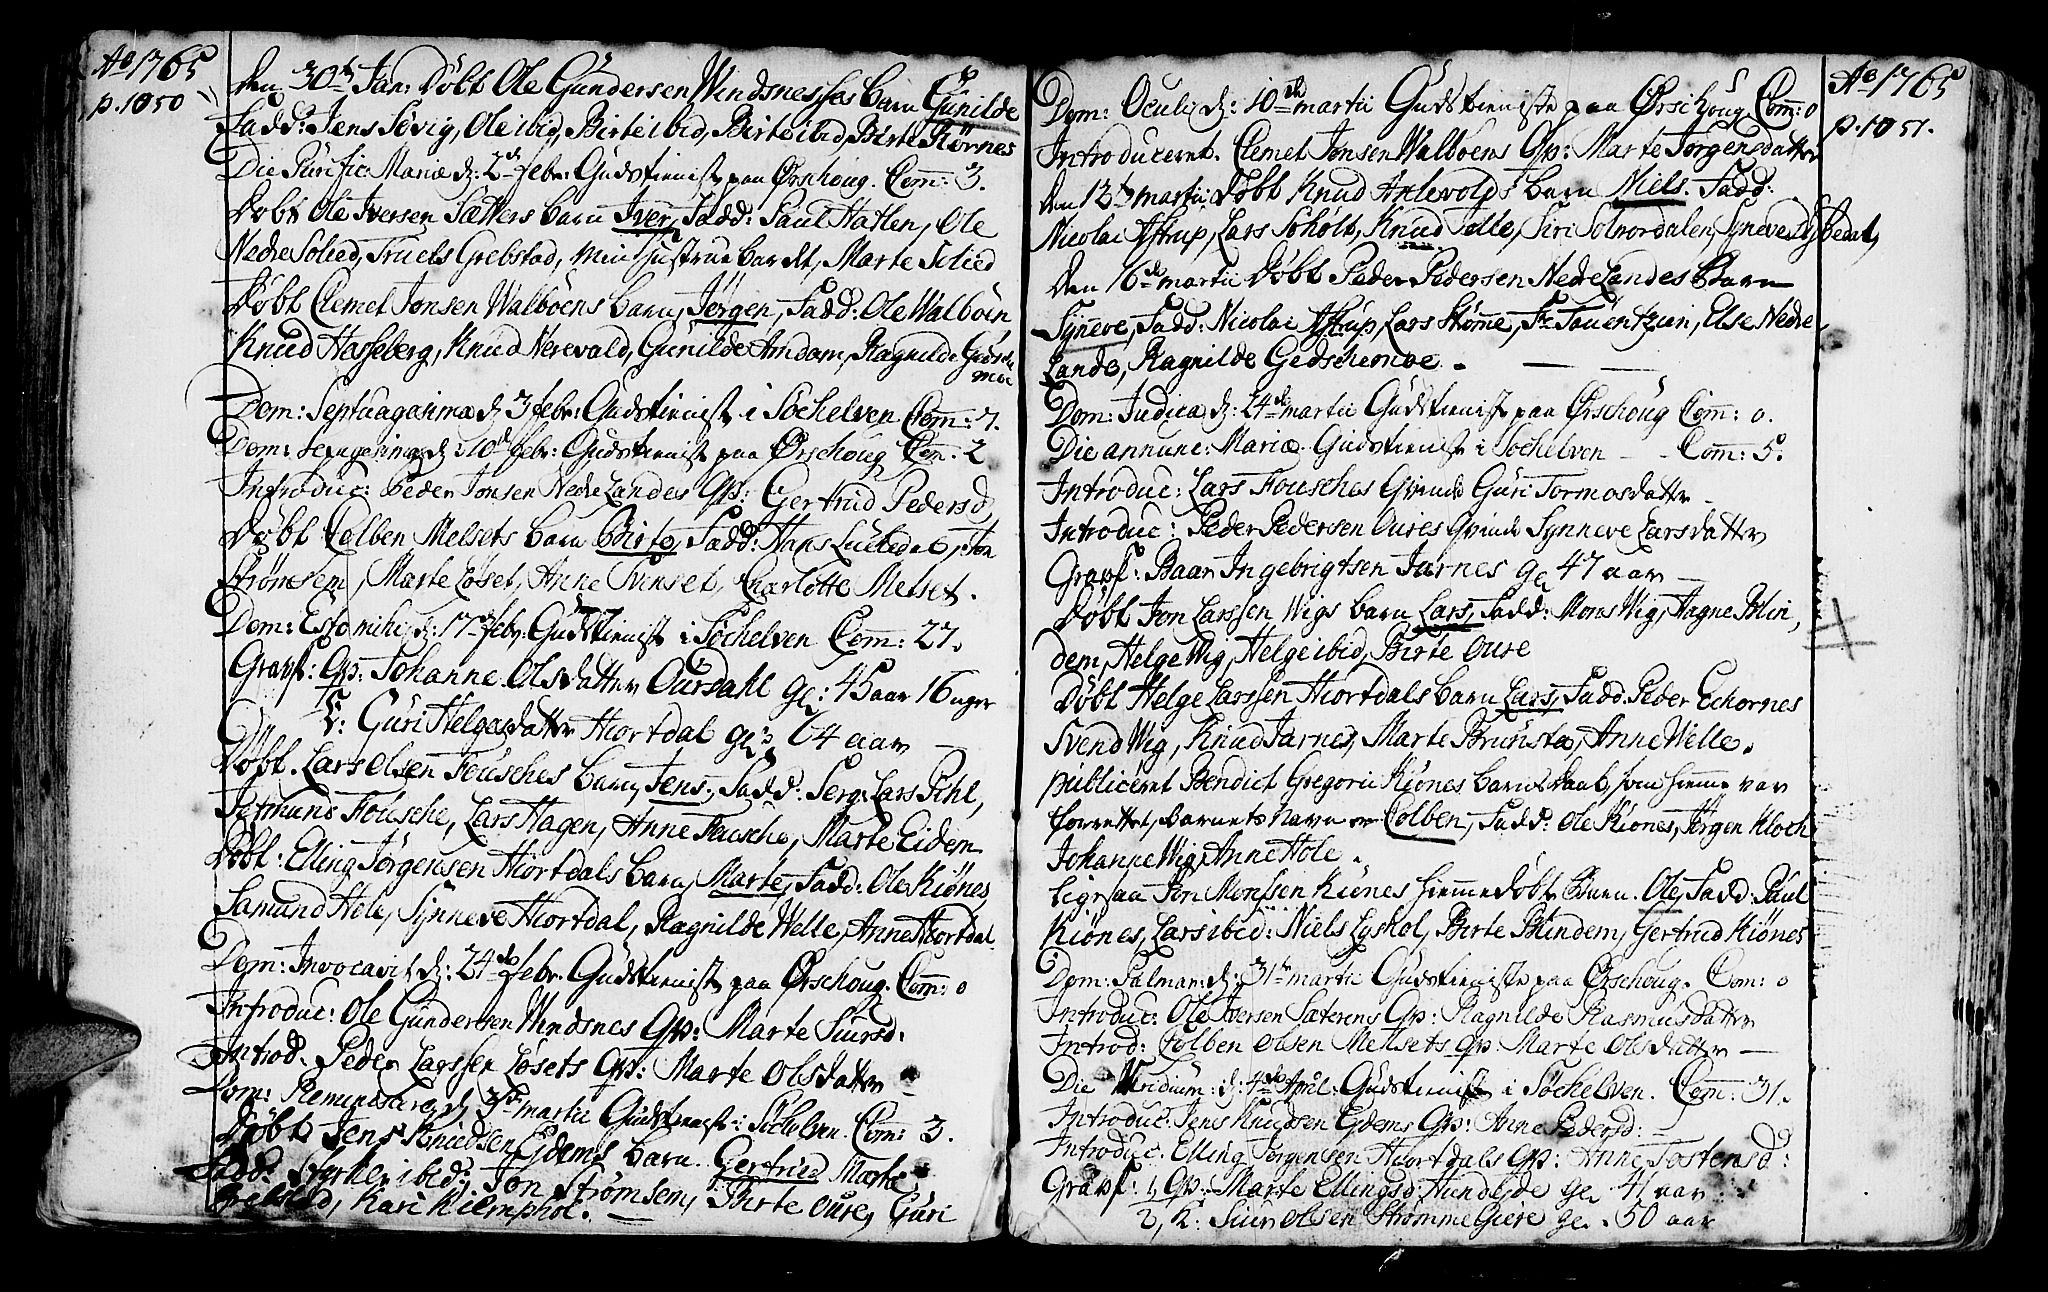 Ao 1765
p. 1050
Den 30te Jan: Døbt Ole Gundersen Windsnes barn Gunilde
Fadd: Jens Søvig, Ole ibid, Birte ibid, Birte ibid, Birte Kørnes
Die Purific: Mariæ d: 2den febr: Gudstienist paa Ørschoug. Com: 3.
Døbt Ole Iversen Sætters barn Iver, Fadd: Paul Hatlen, Ole
Nedre Solied, Truels Grebstad, min Justrue bar det, Marte Solied
Døbt Clemet Jonsen Walbøens barn, Jørgen, Fadd: Ole Walbøen,
Knud Hasseberg, Knud Nerevald, Gunilde Amdam, Ragnilde
Dom: Septuagasima d 3 febr: Gudstienist i Søchelven Com: 7.
Dom: Sexagesima d: 10de febr: Gudstienist paa Ørschoug Com: 2
Introduc: Peder Jonsen Nedre Landes Qv: Gertrud Pedersd.
Døbt Colben Melsets barn Birte, Fadd: Hans Luchedal, Jon
Strømsem, Marte Løset, Anne Tvinset, Charlotte Melset.
Dom: Estomihi d: 17de febr: Gudstienist i Søchelven Com: 27.
Gravf: Qv: Johanne Olsdatter Oursdahl ge: 45 aar 16 uger
K: Guri Helgesdatter Hiortdal ge: 64 aar
Døbt. Lars Olsen Fousches barn, Jens, Fadd: Serg: Lars Pihl,
Fousche, Lars Hagen, Anne Fousche, Marte Eidem
Døbt: Elling Jørgensen Hiortdals barn, Marte, Fadd: Ole Kiønes,
Samund Hole, Synneve Hiortdal, Ragnilde Welle, Anne Hiortdal
Dom: Invocavit d: 24de febr. Gudstienist paa Ørschoug. Com: 0
Introduc: Ole Gundersen Windsnes Qv: Marte Siursd:
Introd. Peder Larssen Løsets Qv: Marte Olsdatter
Dom: Reminiscere d 3die martii Gudstienist i Søchelven. Com: 3.
Døbt Jens Knudsen Eidems barn. Gertrud Marte
Fadd: ibid, Jon Strømsem, Birte Oure, Guri
Grebstad, Kari Kiemphol.
Ao 1765
p. 1051.
Dom: Oculi d: 10de martii Gudstienist paa Ørschoug. Com: 0
Introduceret. Clemet Jonsen Walboens Qv: Marte Jørgensdatter
Den 12te martii: Døbt Knud Anlevolds barn Niels. Fadd:
Nicolai Astrup, Lars Scholt, Knud Tolle, Siri Solnordalen, Syneve Dybedal,
Den 16de martii Døbt Peder Pedersen Nedre Landes Barn
Synneve, Fadd: Nicolai Astrup, Lars Strømme, Fr Fauentzun, Else Nedre
Lande, Ragnilde Gedschemoe.
Dom: Judica d: 24de martii Gudstienist paa Ørschoug Com: 0.
Die annunc: Mariæ. Gudstienist i Søchelven Com: 5.
Introduc: Lars Fousches Qvinde Guri Tormosdatter
Introduc: Peder Pedersen Oures Qvinde Synneve Larsdatter
Gravf: Baar Ingebrigtsen Jarnes ge 47 aar
Døbt Jon Larssen Wigs barn Lars, Fadd: Mons Wig, Hagne Blin,
dem, Helge Wig, Helge ibid, Birte Oure
Døbt Helge Larssen Hiortdals barn Lars, Fadd: Peder Echornes
Svend Wig, Knud Jarnes, Marte Brunstæ, Anne Welle.
publiceret Bendict Gregorii Kiønes barnedaab, som hiemme var
forrettet, barnets navn er Colben, Fadd: Ole Kiønes, Jørgen Kloch
Johanne Wig, Anne Hole.
Ligesaa Jon Monssen Kiønes hiemmedøbte Barn. Ole, Fadd: Paul
Kiønes, Lars ibid: Niels Lyshol, Birte Blindem, Gertrud Kiønes
Dom: Palmar: d: 31te martii Gudstieniste paa Ørschoug. Com: 0
Introduc: Ole Iversen Sæterens Qv: Ragnilde Rasmusdatter
Introd: Colben Olsen Melsets qv: Marte Olsdatter
Die Viridium: d: 4de April: Gudstienist i Søchelven. Com: 31.
Introduc: Jens Knudsen Ejdems Qv: Anne Pedersd:
Introduc: Elling Jørgensen Hiortdals Qv: Anne Tostensd:
Gravf: 1, Qv: Marte Ellingsd Hundejde ge 41 aar
2, K: Siur Olsen Strømmegiere ge. 50 aar